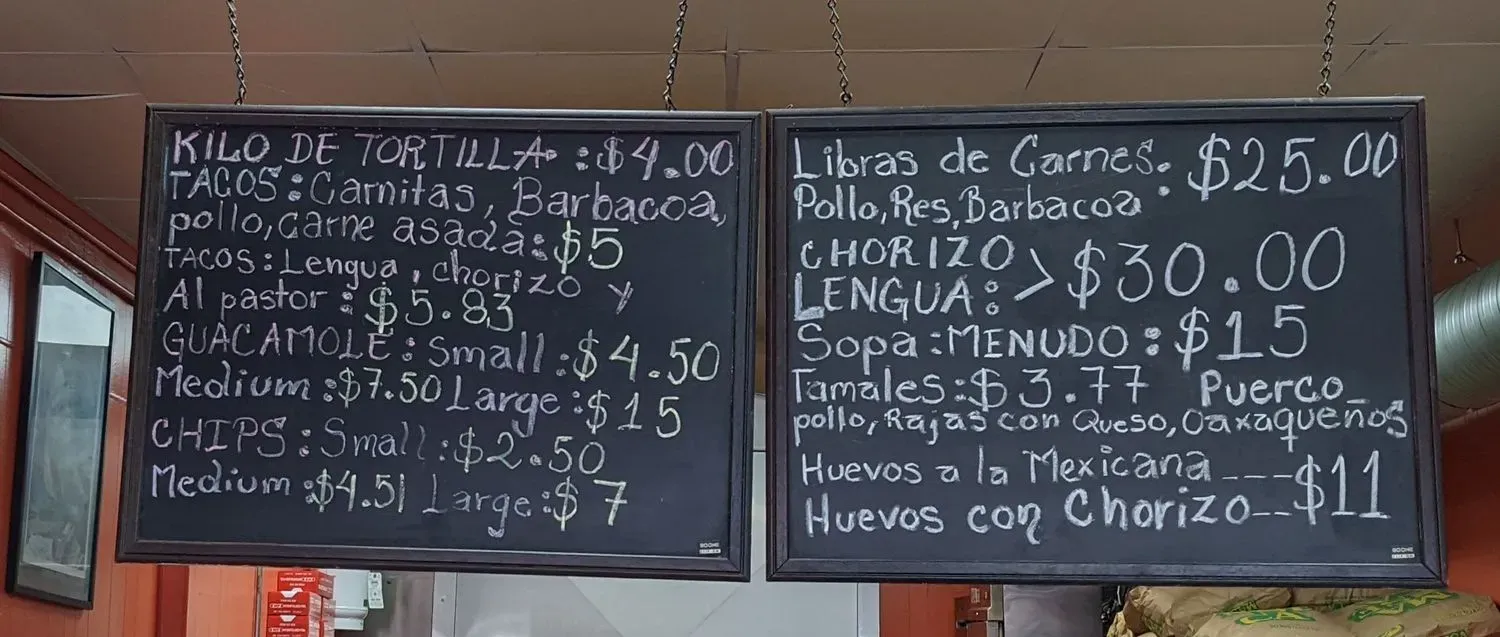 KILO DE TORTILLA : $4.00
TACOS : Carnitas, Barbacoa,
pollo, carne asada : $5
TACOS : Lengua, chorizo y
Al pastor : $5.83
GUACAMOLE : Small : $4.50
Medium : $7.50 Large : $15
CHIPS : Small : $2.50
Medium : $4.51 Large : $7
Libras de Carnes : $25.00
Pollo, Res, Barbacoa
CHORIZO
LENGUA : > $30.00
Sopa : MENUDO : $15
Tamales : $3.77 Puerco
pollo, Rajas con Queso, Oaxaqueños
Huevos a la Mexicana ---$11
Huevos con Chorizo---